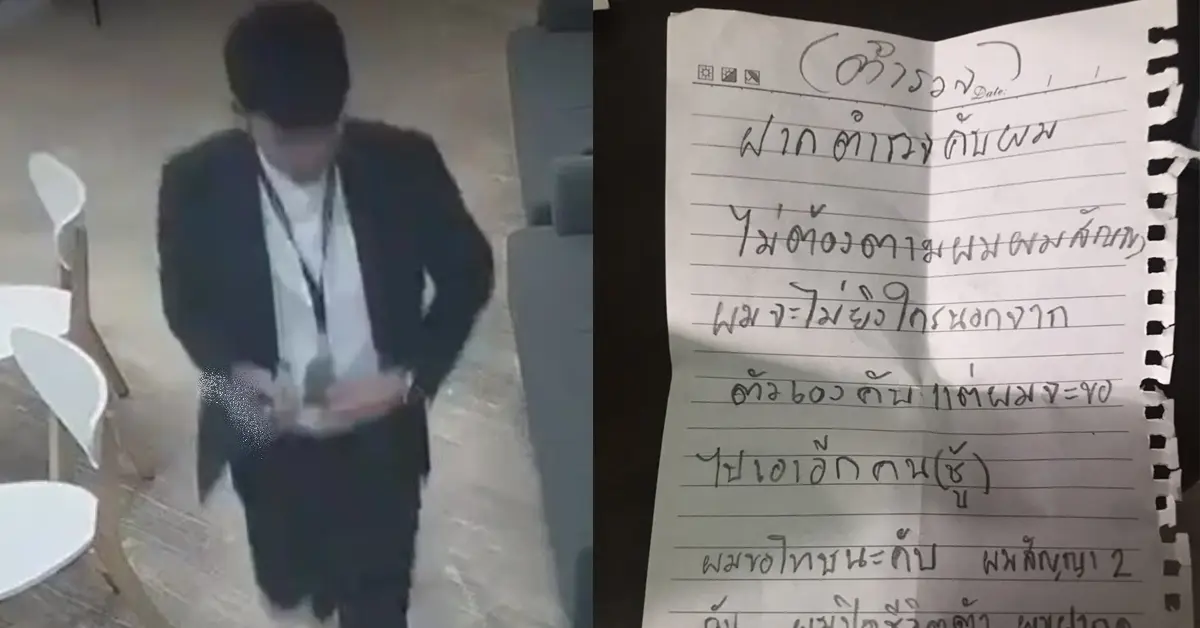 (ตำรวจ)
Date.
ฝากตำรวจคับผม
ไม่ต้องตามผมผมสัญญา
ผมจะไม่ยิงใครนอกจาก
ตัวเองคับ แต่ผมจะขอ
ไปเอาอีกคน(ชู้)
ผมขอโทษนะคับ ผมสัญญา 2
ผมฝาก